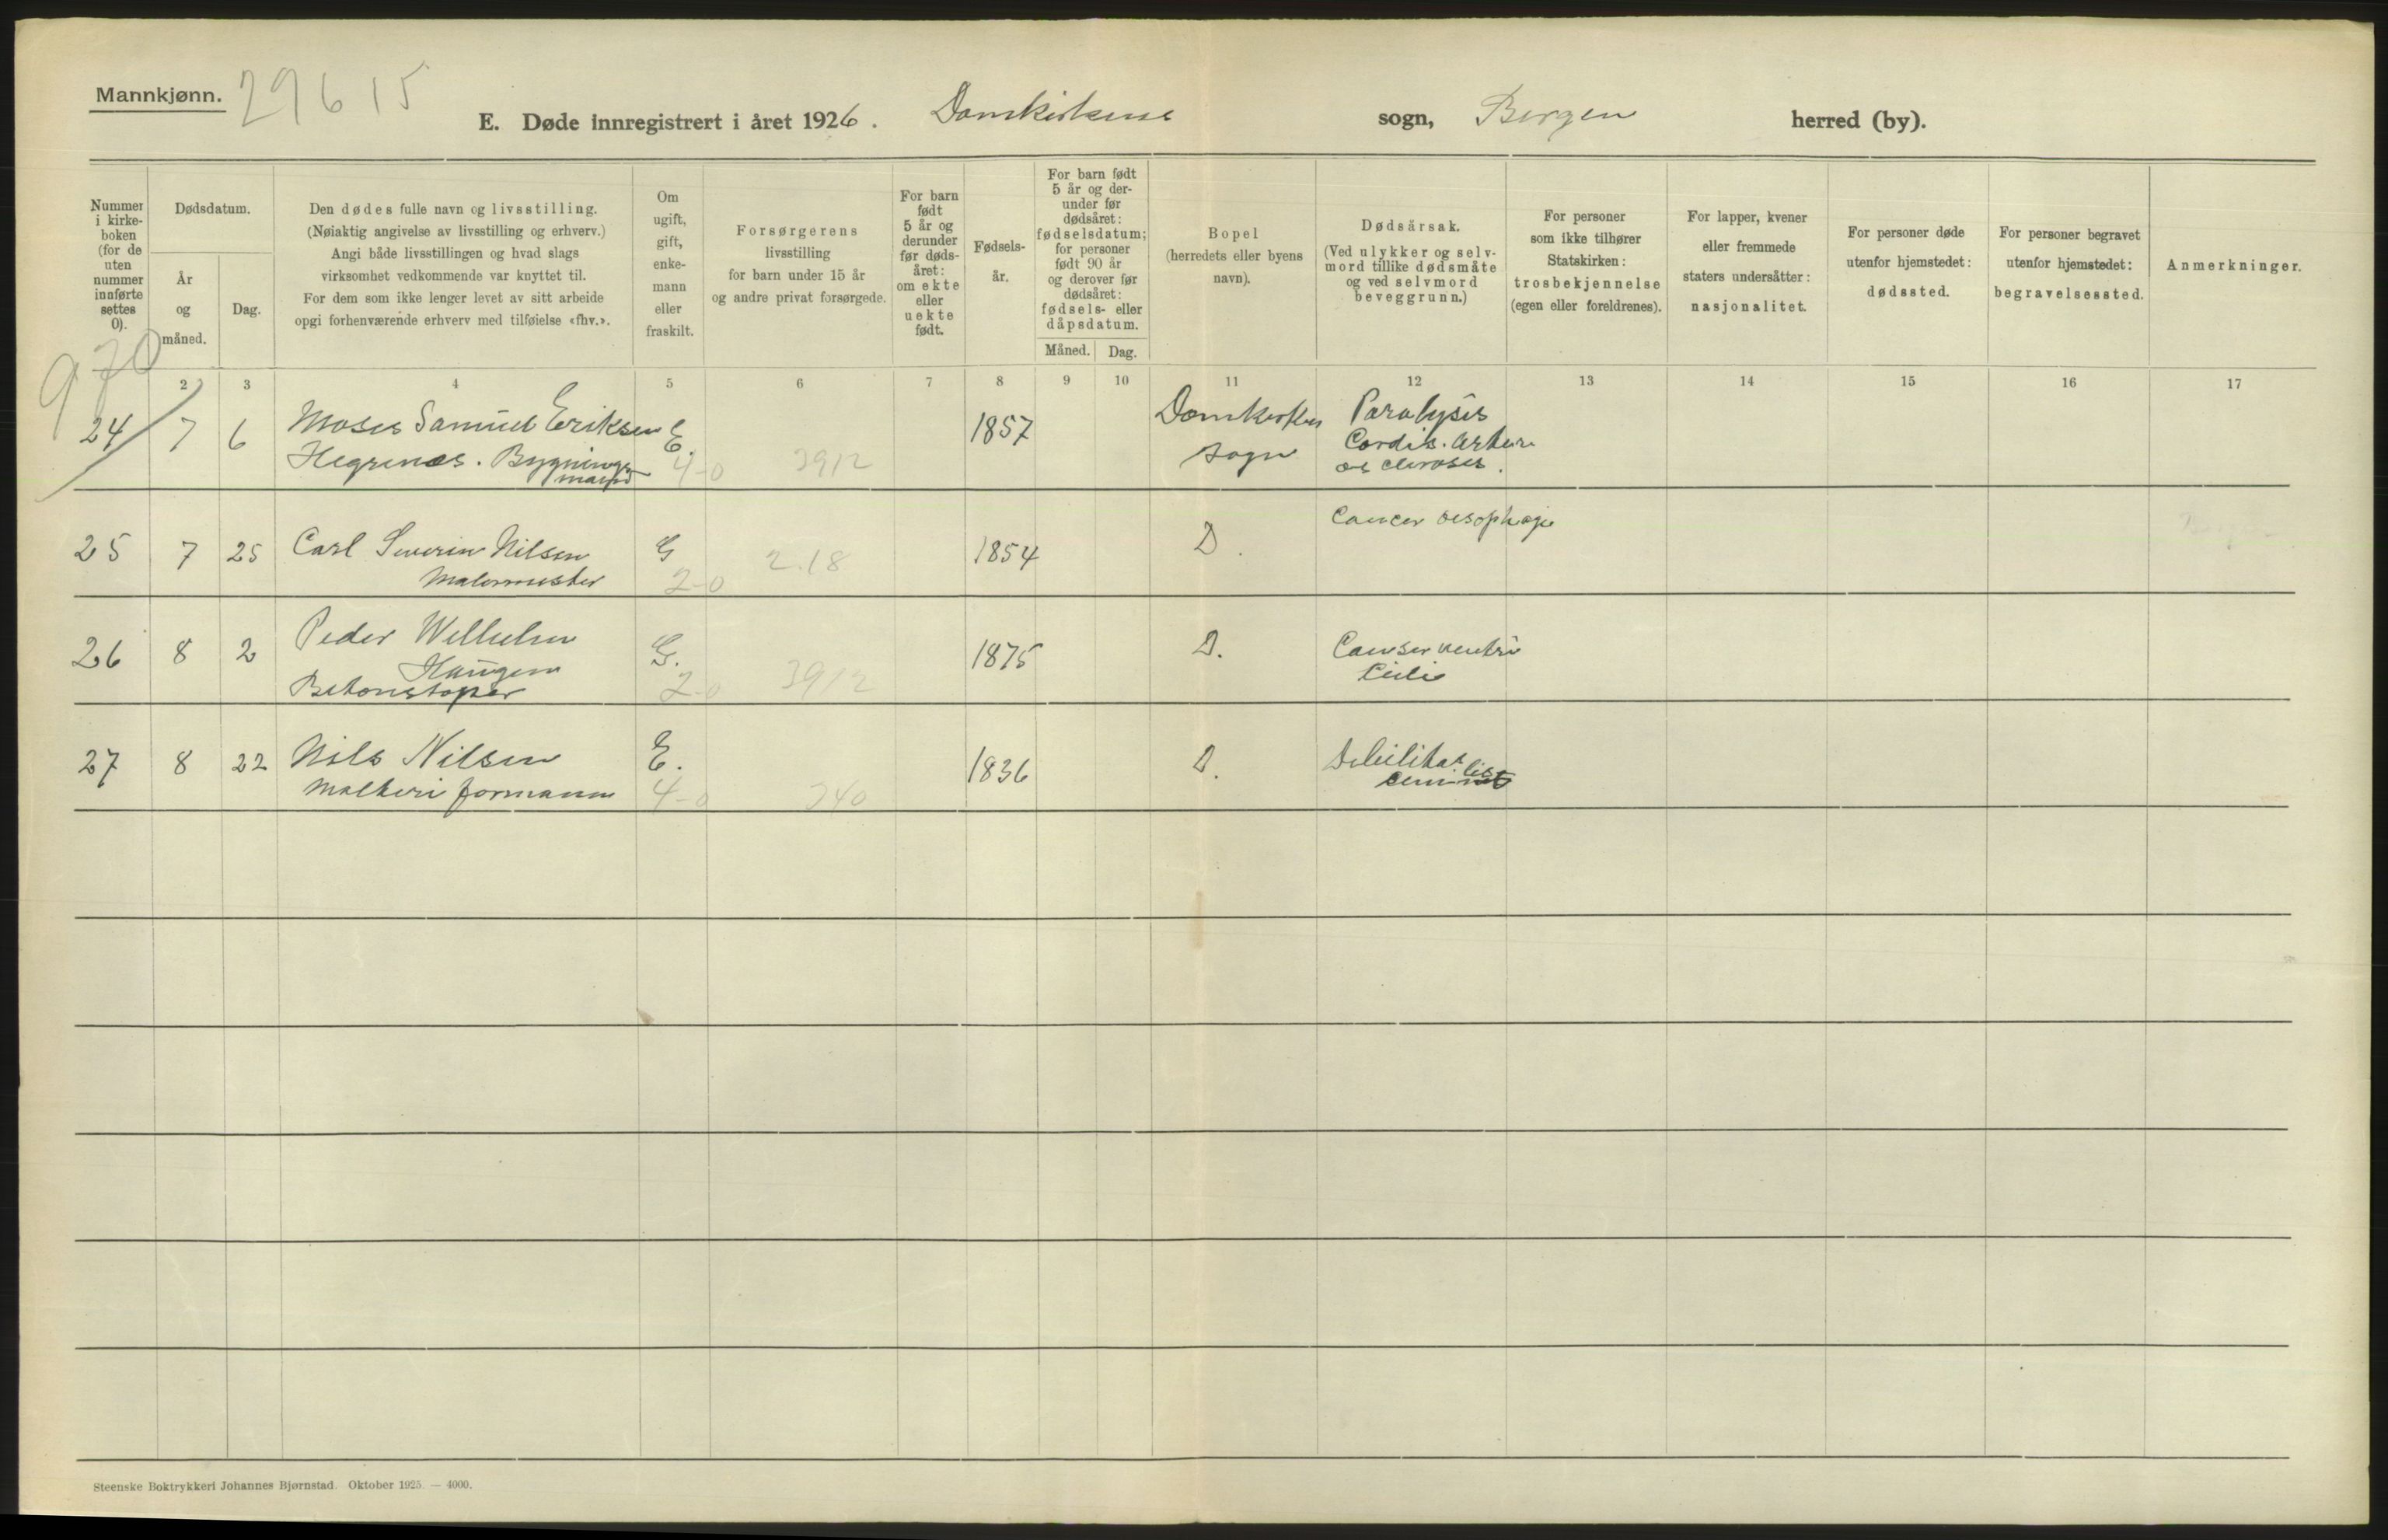 Mannkjønn.
29615
E. Døde innregistrert i året 1926. Domkirkens sogn, Bergen herred (by).
Nummer
i kirke-
boken
(for de
uten
nummer
innførte
settes
0).
Dødsdatum.
År
og
måned.
Dag.
Den dødes fulle navn og livsstilling.
(Nøiaktig angivelse av livsstilling og erhverv.)
Angi både livsstillingen og hvad slags
virksomhet vedkommende var knyttet til.
For dem som ikke lenger levet av sitt arbeide
opgi forhenværende erhverv med tilføielse «fhv.».
Om
ugift,
gift,
enke-
mann
eller
fraskilt.
Forsørgerens
livsstilling
for barn under 15 år
og andre privat forsørgede.
For barn
født
5 år og
derunder
før døds-
året:
om ekte
eller
uekte
født.
Fødsels-
år.
For barn født
5 år og der-
under før
dødsåret:
fødselsdatum;
for personer
født 90 år
og derover før
dødsåret:
fødsels- eller
dåpsdatum.
Måned. Dag.
Bopel
(herredets eller byens
navn).
Dødsårsak.
(Ved ulykker og selv-
mord tillike dødsmåte
og ved selvmord
beveggrunn.)
For personer
som ikke tilhører
Statskirken:
trosbekjennelse
(egen eller foreldrenes).
For lapper, kvener
eller fremmede
staters undersåtter:
nasjonalitet.
For personer døde
utenfor hjemstedet:
dødssted.
For personer begravet
utenfor hjemstedet:
begravelsessted.
Anmerkninger.
970
2 3 4 5 6 7 8 9 10 11 12 13 14 15 16 17
24 7 6 Moses Samuel Eriksen E. 1857 Domkirkens Paralysis
Hegrenæs. Bygnings- 4-0 3912 sogn Cordis. Arteri
mand os clerosis.
25 7 25 Carl Severin Nilsen G 2.18 1854 D. Cancer oesophagi
Malermester 2-0
26 8 2 Peder Wilhelm G. 1875 D. Canser ventri
Haugen 2-0 3912 culi
Betonstøper
27 8 22 Nils Nilsen E. 1836 D. Debilitas
Malteri formann 4-0 340
Steenske Boktrykkeri Johannes Bjørnstad. Oktober 1925. — 4000.